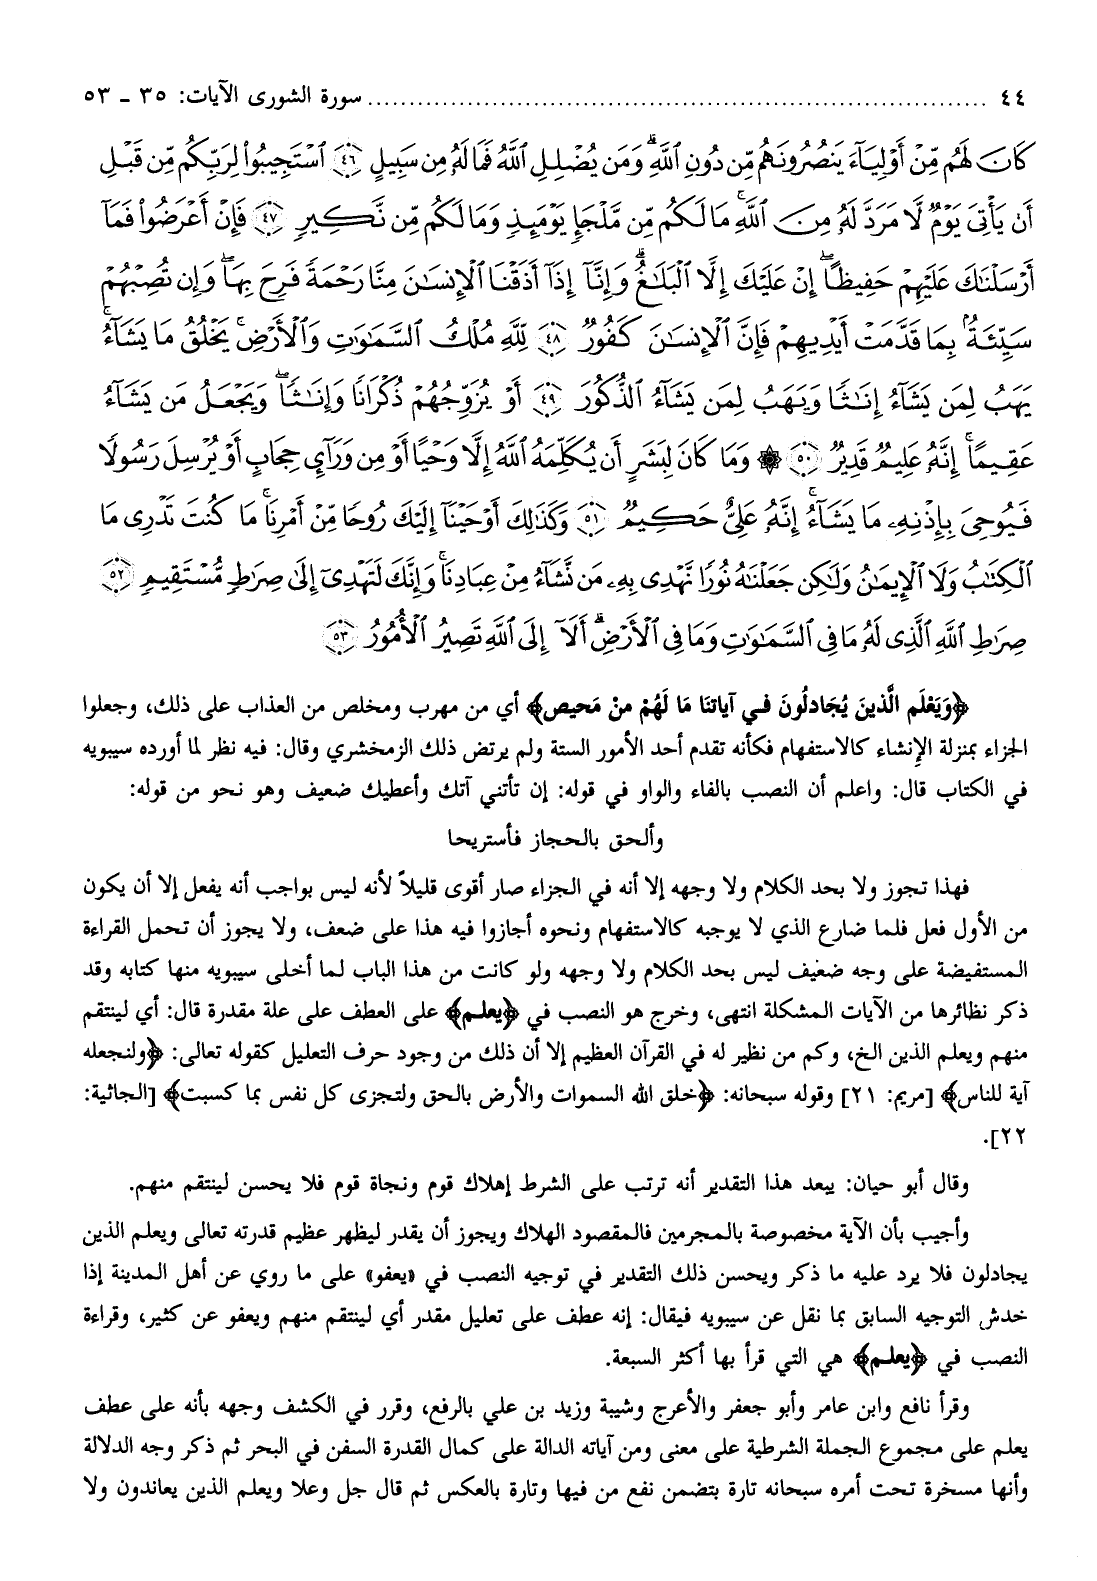 ٤٤ ........................................................................ سورة الشورى الآيات: ٣٥ ـ ٥٣
كَانَ لَهُم مِّنْ أَوْلِيَآءَ يَنصُرُونَهُم مِّن دُونِ ٱللَّهِۗ وَمَن يُضْلِلِ ٱللَّهُ فَمَا لَهُۥ مِن سَبِيلٍ ٤٦ ٱسْتَجِيبُوا۟ لِرَبِّكُم مِّن قَبْلِ
أَن يَأْتِىَ يَوْمٌ لَّا مَرَدَّ لَهُۥ مِنَ ٱللَّهِۚ مَا لَكُم مِّن مَّلْجَإٍ يَوْمَئِذٍ وَمَا لَكُم مِّن نَّكِيرٍ ٤٧ فَإِنْ أَعْرَضُوا۟ فَمَآ
أَرْسَلْنَٰكَ عَلَيْهِمْ حَفِيظًاۖ إِنْ عَلَيْكَ إِلَّا ٱلْبَلَٰغُۗ وَإِنَّآ إِذَآ أَذَقْنَا ٱلْإِنسَٰنَ مِنَّا رَحْمَةً فَرِحَ بِهَاۖ وَإِن تُصِبْهُمْ
سَيِّئَةٌۢ بِمَا قَدَّمَتْ أَيْدِيهِمْ فَإِنَّ ٱلْإِنسَٰنَ كَفُورٌ ٤٨ لِّلَّهِ مُلْكُ ٱلسَّمَٰوَٰتِ وَٱلْأَرْضِۚ يَخْلُقُ مَا يَشَآءُۚ
يَهَبُ لِمَن يَشَآءُ إِنَٰثًا وَيَهَبُ لِمَن يَشَآءُ ٱلذُّكُورَ ٤٩ أَوْ يُزَوِّجُهُمْ ذُكْرَانًا وَإِنَٰثًاۖ وَيَجْعَلُ مَن يَشَآءُ
عَقِيمًاۚ إِنَّهُۥ عَلِيمٌ قَدِيرٌ ٥٠ ۞ وَمَا كَانَ لِبَشَرٍ أَن يُكَلِّمَهُ ٱللَّهُ إِلَّا وَحْيًا أَوْ مِن وَرَآئِ حِجَابٍ أَوْ يُرْسِلَ رَسُولًا
فَيُوحِىَ بِإِذْنِهِۦ مَا يَشَآءُۚ إِنَّهُۥ عَلِىٌّ حَكِيمٌ ٥١ وَكَذَٰلِكَ أَوْحَيْنَآ إِلَيْكَ رُوحًا مِّنْ أَمْرِنَاۚ مَا كُنتَ تَدْرِى مَا
ٱلْكِتَٰبُ وَلَا ٱلْإِيمَٰنُ وَلَٰكِن جَعَلْنَٰهُ نُورًا نَّهْدِى بِهِۦ مَن نَّشَآءُ مِنْ عِبَادِنَاۚ وَإِنَّكَ لَتَهْدِىٓ إِلَىٰ صِرَٰطٍ مُّسْتَقِيمٍ ٥٢
صِرَٰطِ ٱللَّهِ ٱلَّذِى لَهُۥ مَا فِى ٱلسَّمَٰوَٰتِ وَمَا فِى ٱلْأَرْضِۗ أَلَآ إِلَى ٱللَّهِ تَصِيرُ ٱلْأُمُورُ ٥٣
﴿وَيَعْلَم الَّذينَ يُجَادلُونَ فـي آياتنَا مَا لَهُمْ منْ مَحيص﴾ أي من مهرب ومخلص من العذاب على ذلك، وجعلوا
الجزاء بمنزلة الإنشاء كالاستفهام فكأنه تقدم أحد الأمور الستة ولم يرتض ذلك الزمخشري وقال: فيه نظر لما أورده سيبويه
في الكتاب قال: واعلم أن النصب بالفاء والواو في قوله: إن تأتني آتك وأعطيك ضعيف وهو نحو من قوله:
وألحق بالحجاز فأستريحا
فهذا تجوز ولا بحد الكلام ولا وجهه إلا أنه في الجزاء صار أقوى قليلاً لأنه ليس بواجب أنه يفعل إلا أن يكون
من الأول فعل فلما ضارع الذي لا يوجبه كالاستفهام ونحوه أجازوا فيه هذا على ضعف، ولا يجوز أن تحمل القراءة
المستفيضة على وجه ضعيف ليس بحد الكلام ولا وجهه ولو كانت من هذا الباب لما أخلى سيبويه منها كتابه وقد
ذكر نظائرها من الآيات المشكلة انتهى، وخرج هو النصب في ﴿يعلم﴾ على العطف على علة مقدرة قال: أي لينتقم
منهم ويعلم الذين الخ، وكم من نظير له في القرآن العظيم إلا أن ذلك من وجود حرف التعليل كقوله تعالى: ﴿ولنجعله
آية للناس﴾ [مريم: ٢١] وقوله سبحانه: ﴿خلق الله السموات والأرض بالحق ولتجزى كل نفس بما كسبت﴾ [الجاثية:
٢٢].
وقال أبو حيان: يبعد هذا التقدير أنه ترتب على الشرط إهلاك قوم ونجاة قوم فلا يحسن لينتقم منهم.
وأجيب بأن الآية مخصوصة بالمجرمين فالمقصود الهلاك ويجوز أن يقدر ليظهر عظيم قدرته تعالى ويعلم الذين
يجادلون فلا يرد عليه ما ذكر ويحسن ذلك التقدير في توجيه النصب في «يعفو» على ما روي عن أهل المدينة إذا
خدش التوجيه السابق بما نقل عن سيبويه فيقال: إنه عطف على تعليل مقدر أي لينتقم منهم ويعفو عن كثير، وقراءة
النصب في ﴿يعلم﴾ هي التي قرأ بها أكثر السبعة.
وقرأ نافع وابن عامر وأبو جعفر والأعرج وشيبة وزيد بن علي بالرفع، وقرر في الكشف وجهه بأنه على عطف
يعلم على مجموع الجملة الشرطية على معنى ومن آياته الدالة على كمال القدرة السفن في البحر ثم ذكر وجه الدلالة
وأنها مسخرة تحت أمره سبحانه تارة بتضمن نفع من فيها وتارة بالعكس ثم قال جل وعلا ويعلم الذين يعاندون ولا